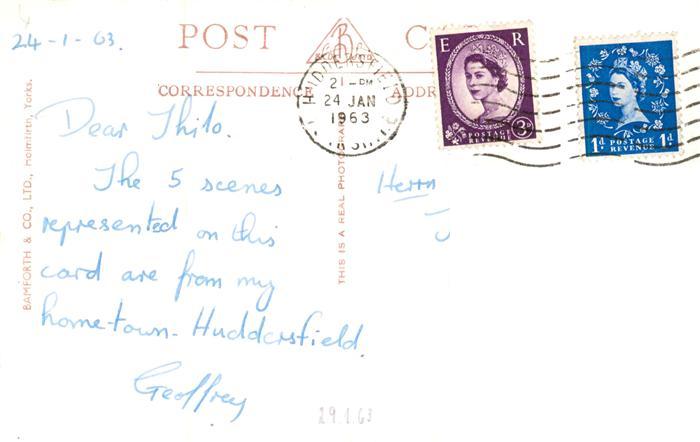 24-1-63.
POST
CORRESPONDENCE
ADDR
HUDDERSFIELD
21- PM
24 JAN
1963
E R
POSTAGE
REVENUE
3D
1d POSTAGE 1d
REVENUE
BAMFORTH & CO., LTD., Holmfirth, Yorks.
THIS IS A REAL PHOTOGRA
Dear Thilo.
The 5 scenes
represented on this
card are from my
home-town-Huddersfield.
Geoffrey
Herrn
29.1.63